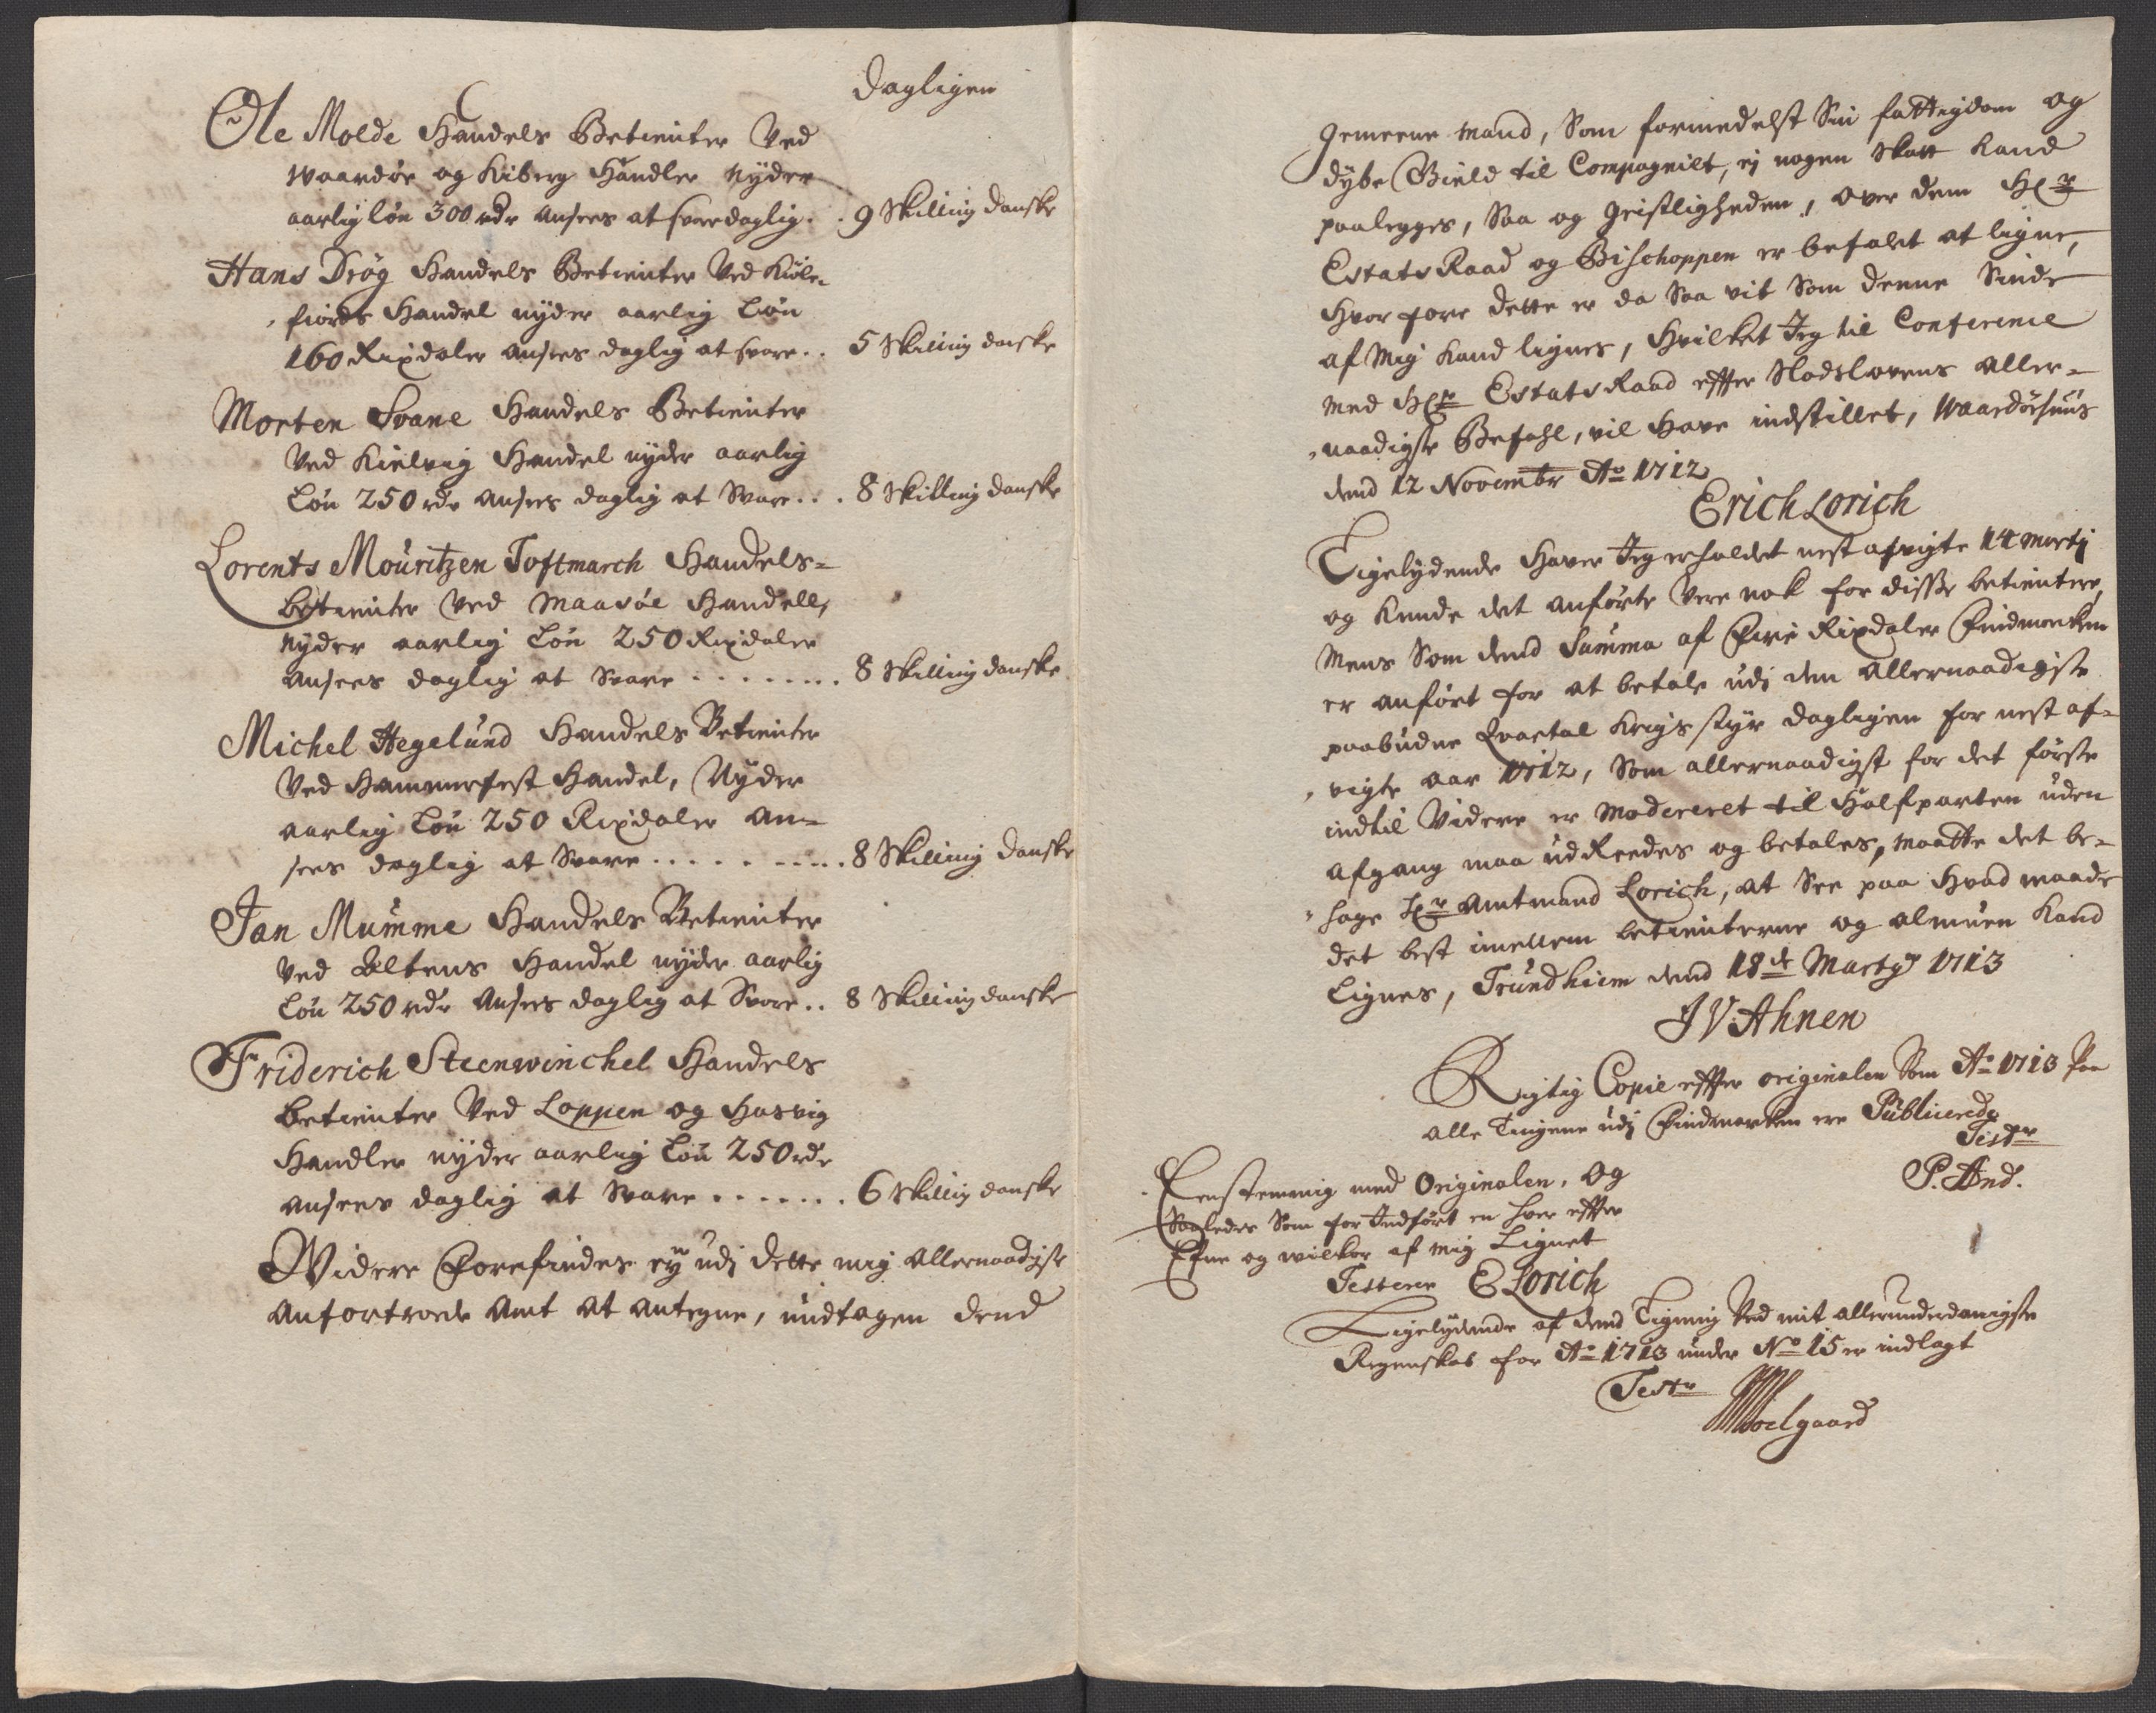 Dagligen
Ole Molde Handels Betienter Ved
Waardøe og Kiberg Handler nyder
aarlig løn 300 rdr ansees at svare daglig . . 9 Skilling danske
Hans Drøg Handels Betienter Ved Kiøle-
fiords Handel nyder aarlig Løn
160 Rixdaler ansees daglig at svare . . 5 Skilling danske
Morten Svane Handels Betienter
Ved Kielvig Handel nyder aarlig
Løn 250 rdr ansees daglig at Svare . . . 8 Skilling danske
Lorents Mouritzen Toftmarch Handels-
betienter Ved Maasøe Handell,
nyder aarlig Løn 250 Rixdaler
ansees daglig at Svare . . . . . . . . 8 Skilling danske
Michel Hegelund Handels Betienter
Ved Hammerfest Handel, Nyder
aarlig Løn 250 Rixdaler an-
sees daglig at Svare . . . . . . . . . 8 Skilling danske
Jan Mumme Handels Betienter
Ved Altens Handel nyder aarlig
Løn 250 rdr ansees daglig at Svare . . 8 Skilling danske
Friderich Steenwinchel Handels
Betienter Ved Loppen og Hasvig
Handler nyder aarlig Løn 250 rdr
ansees daglig at Svare . . . . . . . 6 Skilling danske
Widere Forefindes ey udj dette mig allernaadigst
anfortroede Amt at antegne, undtagen dend
gemeene mand, Som formedelst Sin fattigdom og
dybe Gield til Compagniet, ej nogen Skatt kand
paalegges, Saa og Geistligheden, over dem Hr
Estats Raad og Bischoppen er befalet at ligne,
Hvorfore dette er da saa vit Som denne Sinde
af Mig kand lignes, Hvilket Jeg til Conference
med Hr Estats Raad effter Slodslovens aller-
naadigste Befahl, vil Have indstillet, Waardøehuus
dend 12 Novembr Ao 1712
Erich Lorich
Ligelydende Haver Jeg erholdet nest afvigte 14 Martij
og kunde det anførte Vere nok for disse betientere,
Mens Som dend Summa af Fire Rixdaler Findmarken
er anført for at betale udj den allernaadigste
paabudne Qvartal Krigs styr dagligen for nest af-
vigte aar 1712, Som allernaadigst for det første
indtil Videre er modereret til Halfparten uden
afgang maa udReedes og betales, maatte det be-
hage Hr Amtmand Lorich, at See paa Hvad maade
det best imellem betienterne og almuen kand
Lignes, Trundhiem dend 18de Martij 1713
J V Ahnen
Rigtig Copie effter originalen Som Ao 1713 Paa
alle Tingene udj Findmarken ere Publicerede
Testr
P. And.
Eenstemmig med Originalen, og
Saaledes Som for Indført en hver effter
Efne og Wilkor af mig Lignet
Testerer E Lorich
Ligelydende af dend Ligning Ved mit allerunderdanigste
Regenskab for Ao 1713 under No 15 er indlagt
Testr
Woelgaard